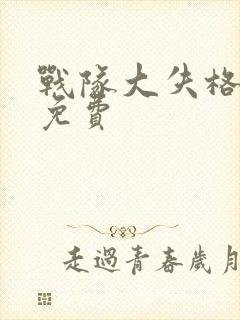 戰隊大失格
免費
走過青春歲月